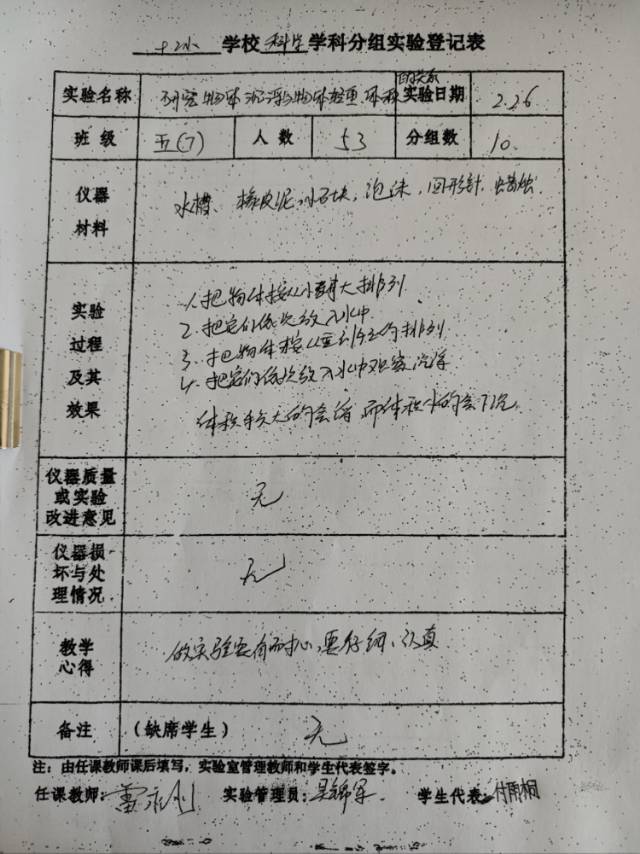 学校 科学 学科分组实验登记表
的关系
实验名称 研究物体沉浮与物体轻重、体积 实验日期 2.26
班级 五(7) 人数 53 分组数 10.
仪器材料 水槽、橡皮泥、小石块、泡沫、回形针、蜡烛
实验过程及其效果
1、把物体按从小到大排列
2、把它们依次放入水中
3、把物体按从重到轻的排列
4、把它们依次放入水中观察沉浮
体积较大的会浮 而体积小的会下沉。
仪器质量或实验改进意见 无
仪器损坏与处理情况 无
教学心得 做实验要有耐心,要仔细、认真
备注 (缺席学生) 无
注:由任课教师课后填写,实验室管理教师和学生代表签字。
任课教师: 雷永刚 实验管理员: 学生代表: 付雨桐